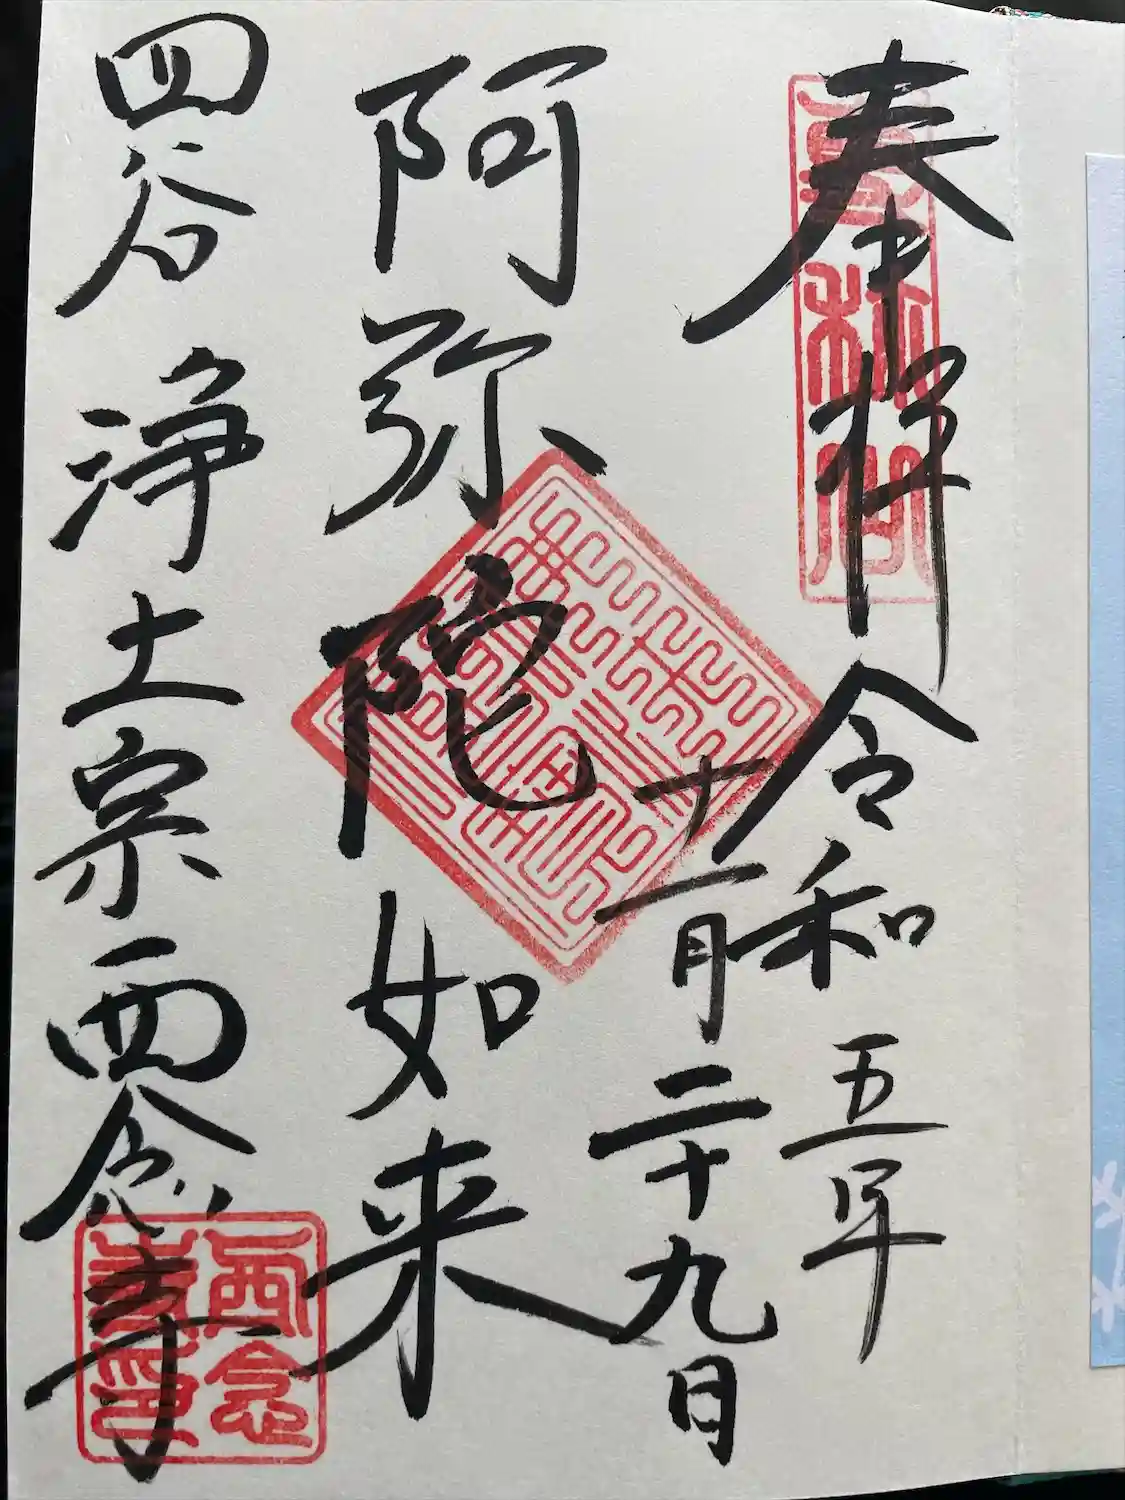 奉拝
令和五年
十一月二十九日
阿弥陀如来
四谷浄土宗西念寺
西念
寺印